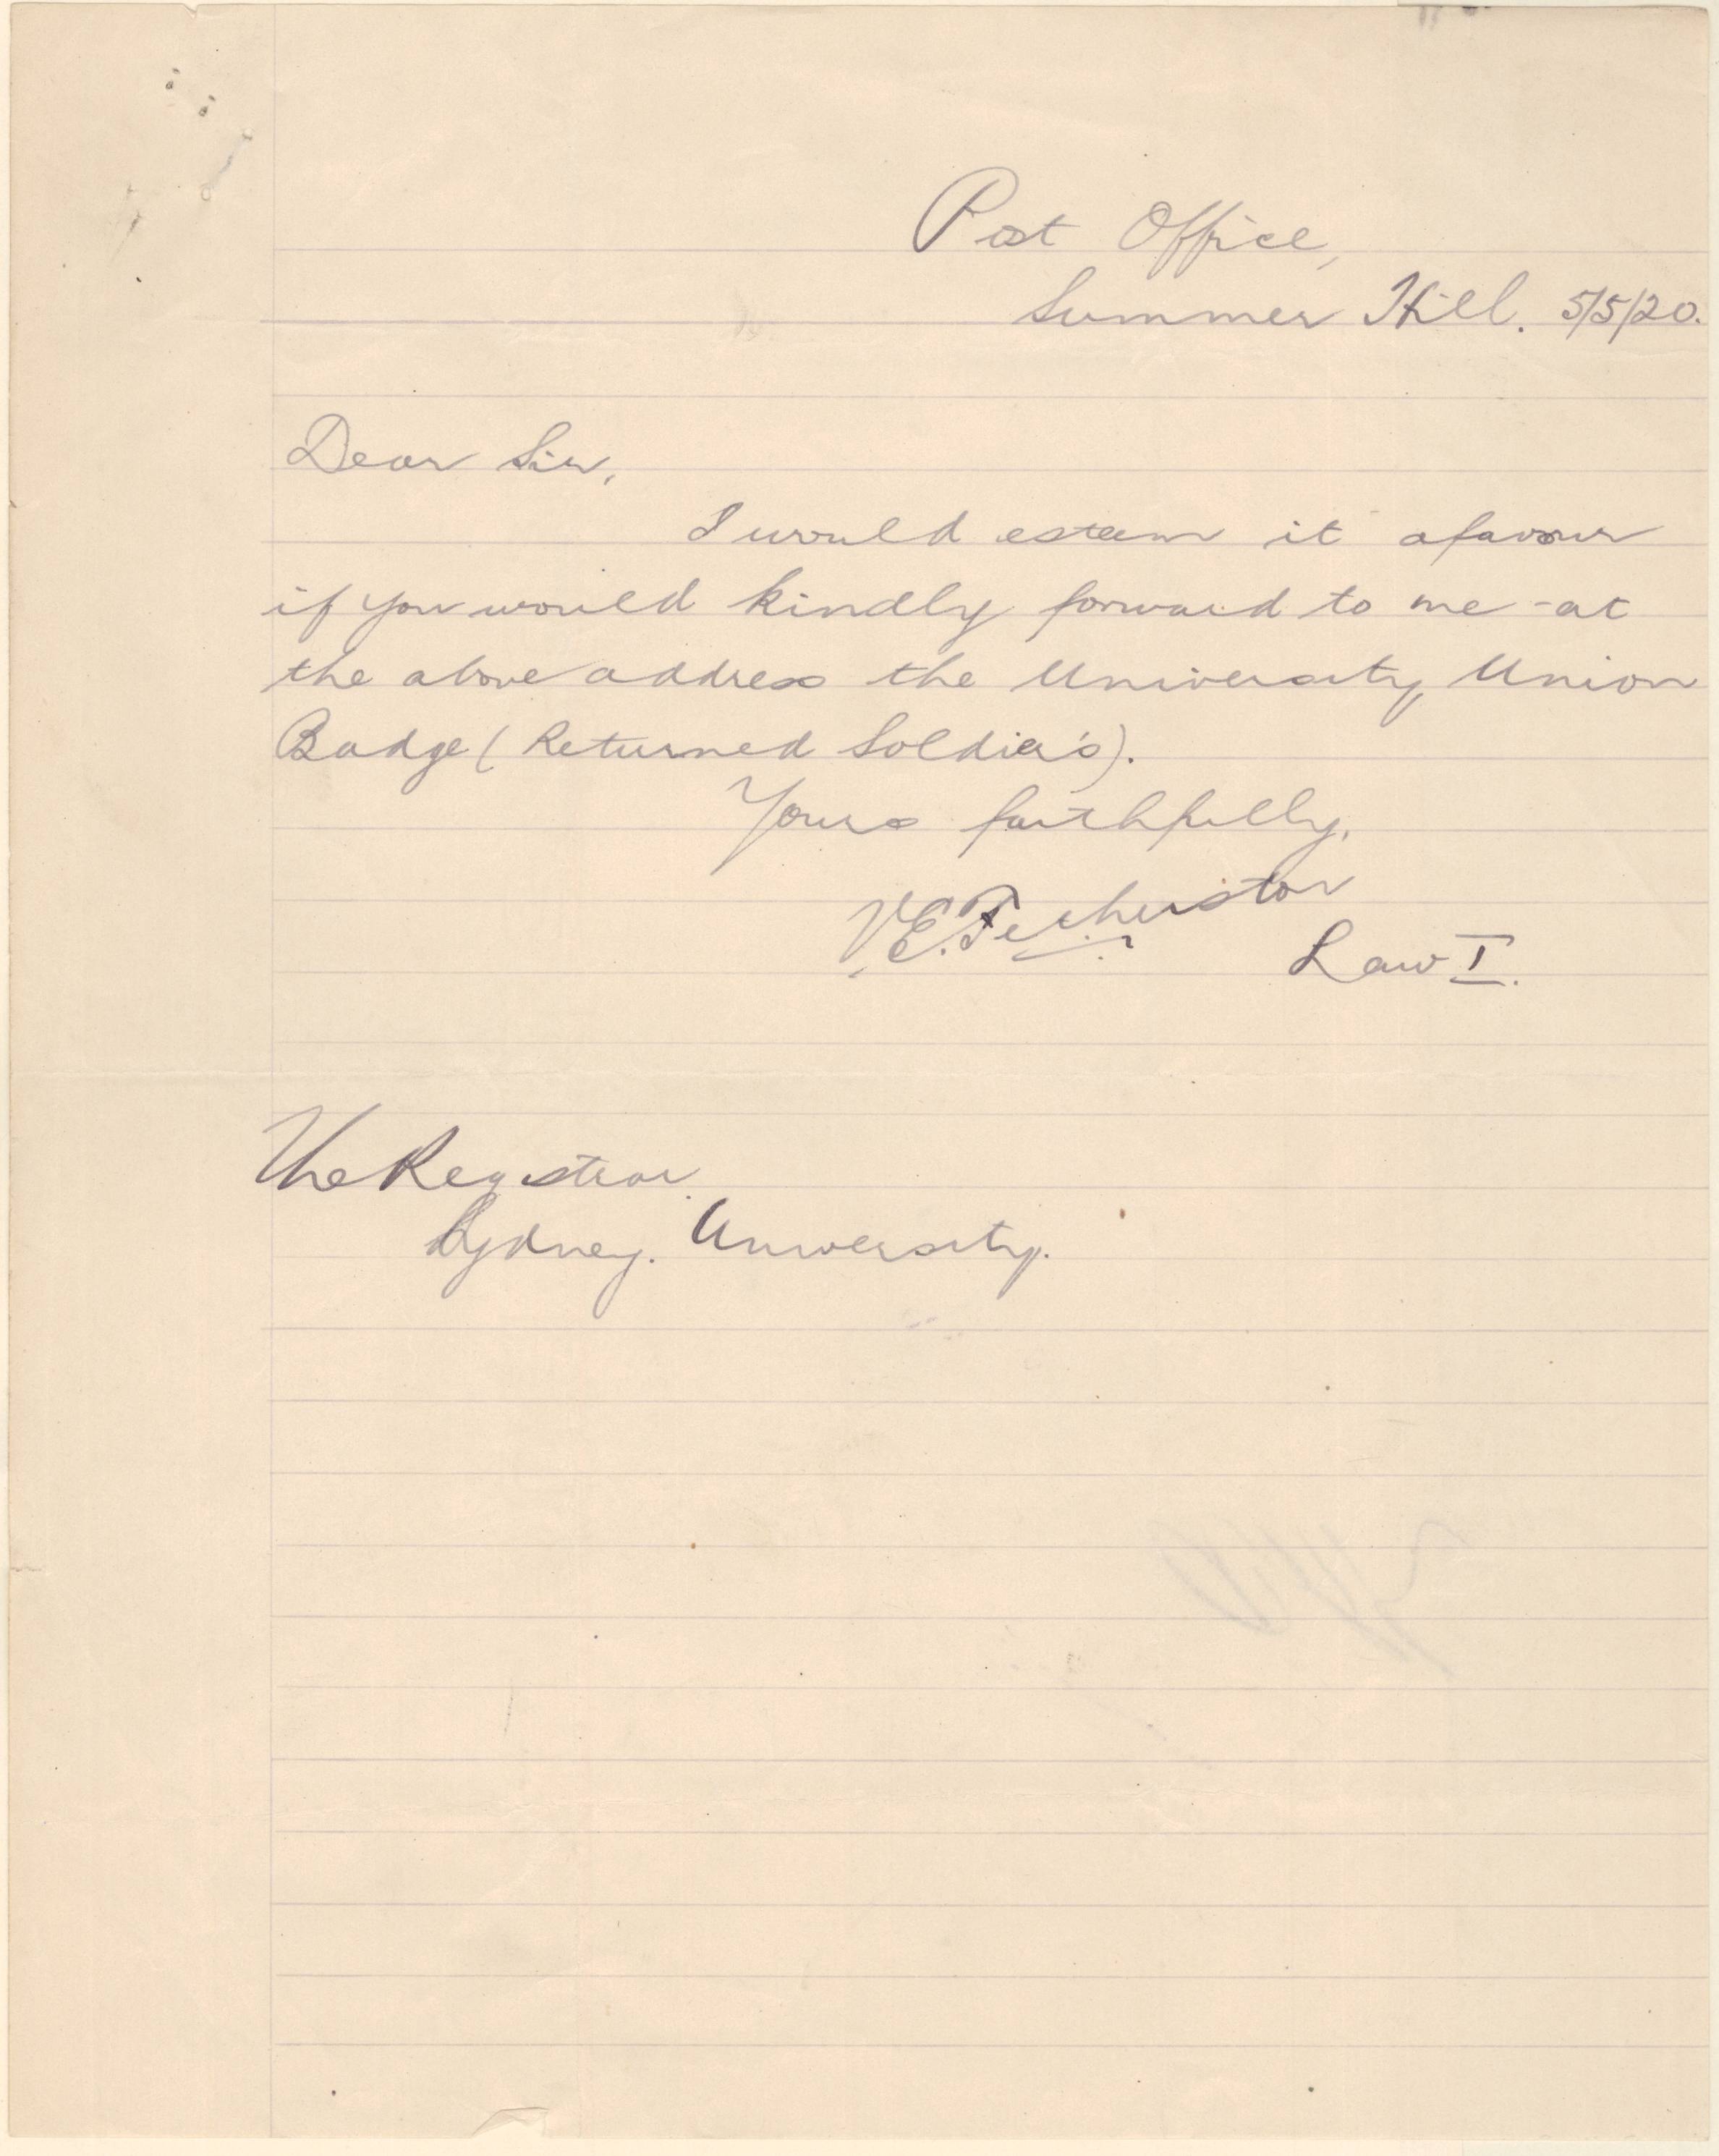 Post Office,
Summer Hill. 5/5/20.
Dear Sir,
I would esteem it a favour
if you would kindly forward to me at
the above address the University Union
Badge (Returned Soldier's).
Yours faithfully,
V.E.
Law I.
The Registrar
Sydney. University.